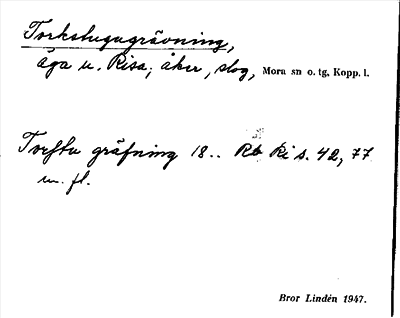 Torkstugugrävning,
äga u. Risa; åker, slog, Mora sn o. tg, Kopp. l.
gräfning 18.. Rb Ri s. 42, 77
m. fl.
Bror Lindén 1947.